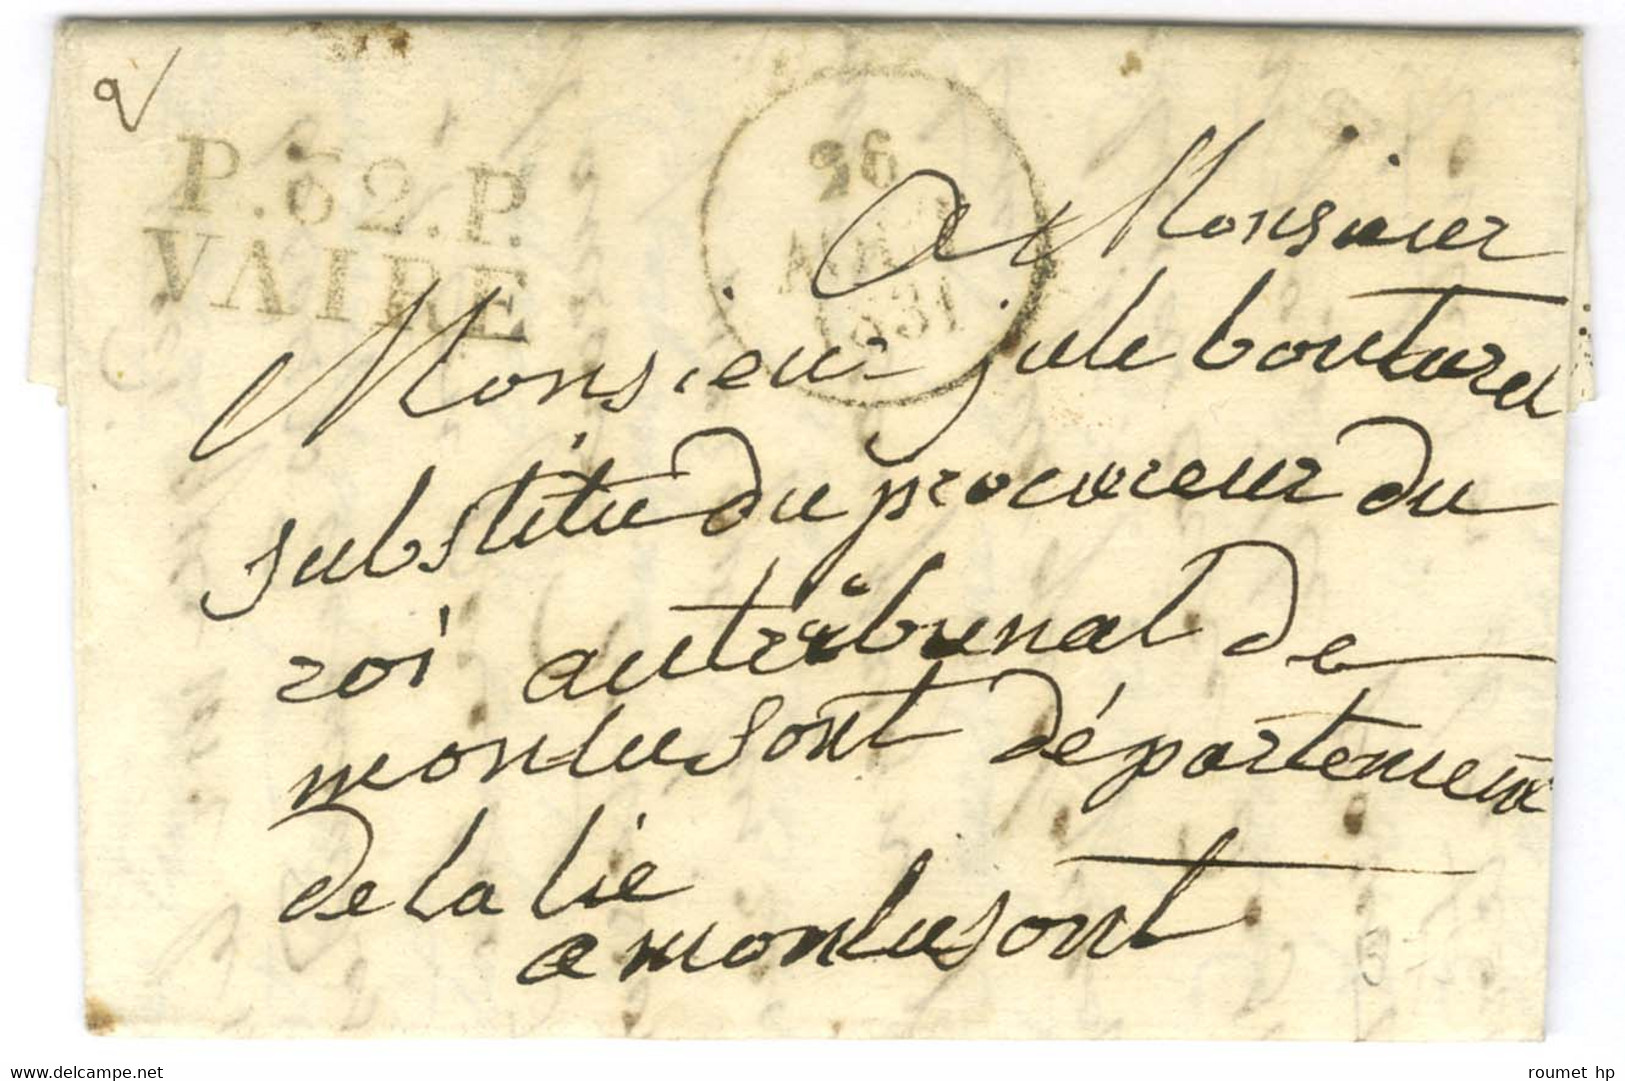 P.32.P.
VAIRE
26
MARS
1831
a Monsieur
Monsieur jule boutarel
substitu du procureur du
roi au tribunal de
monlusont département
de la lié
a monlusont
roumet hp